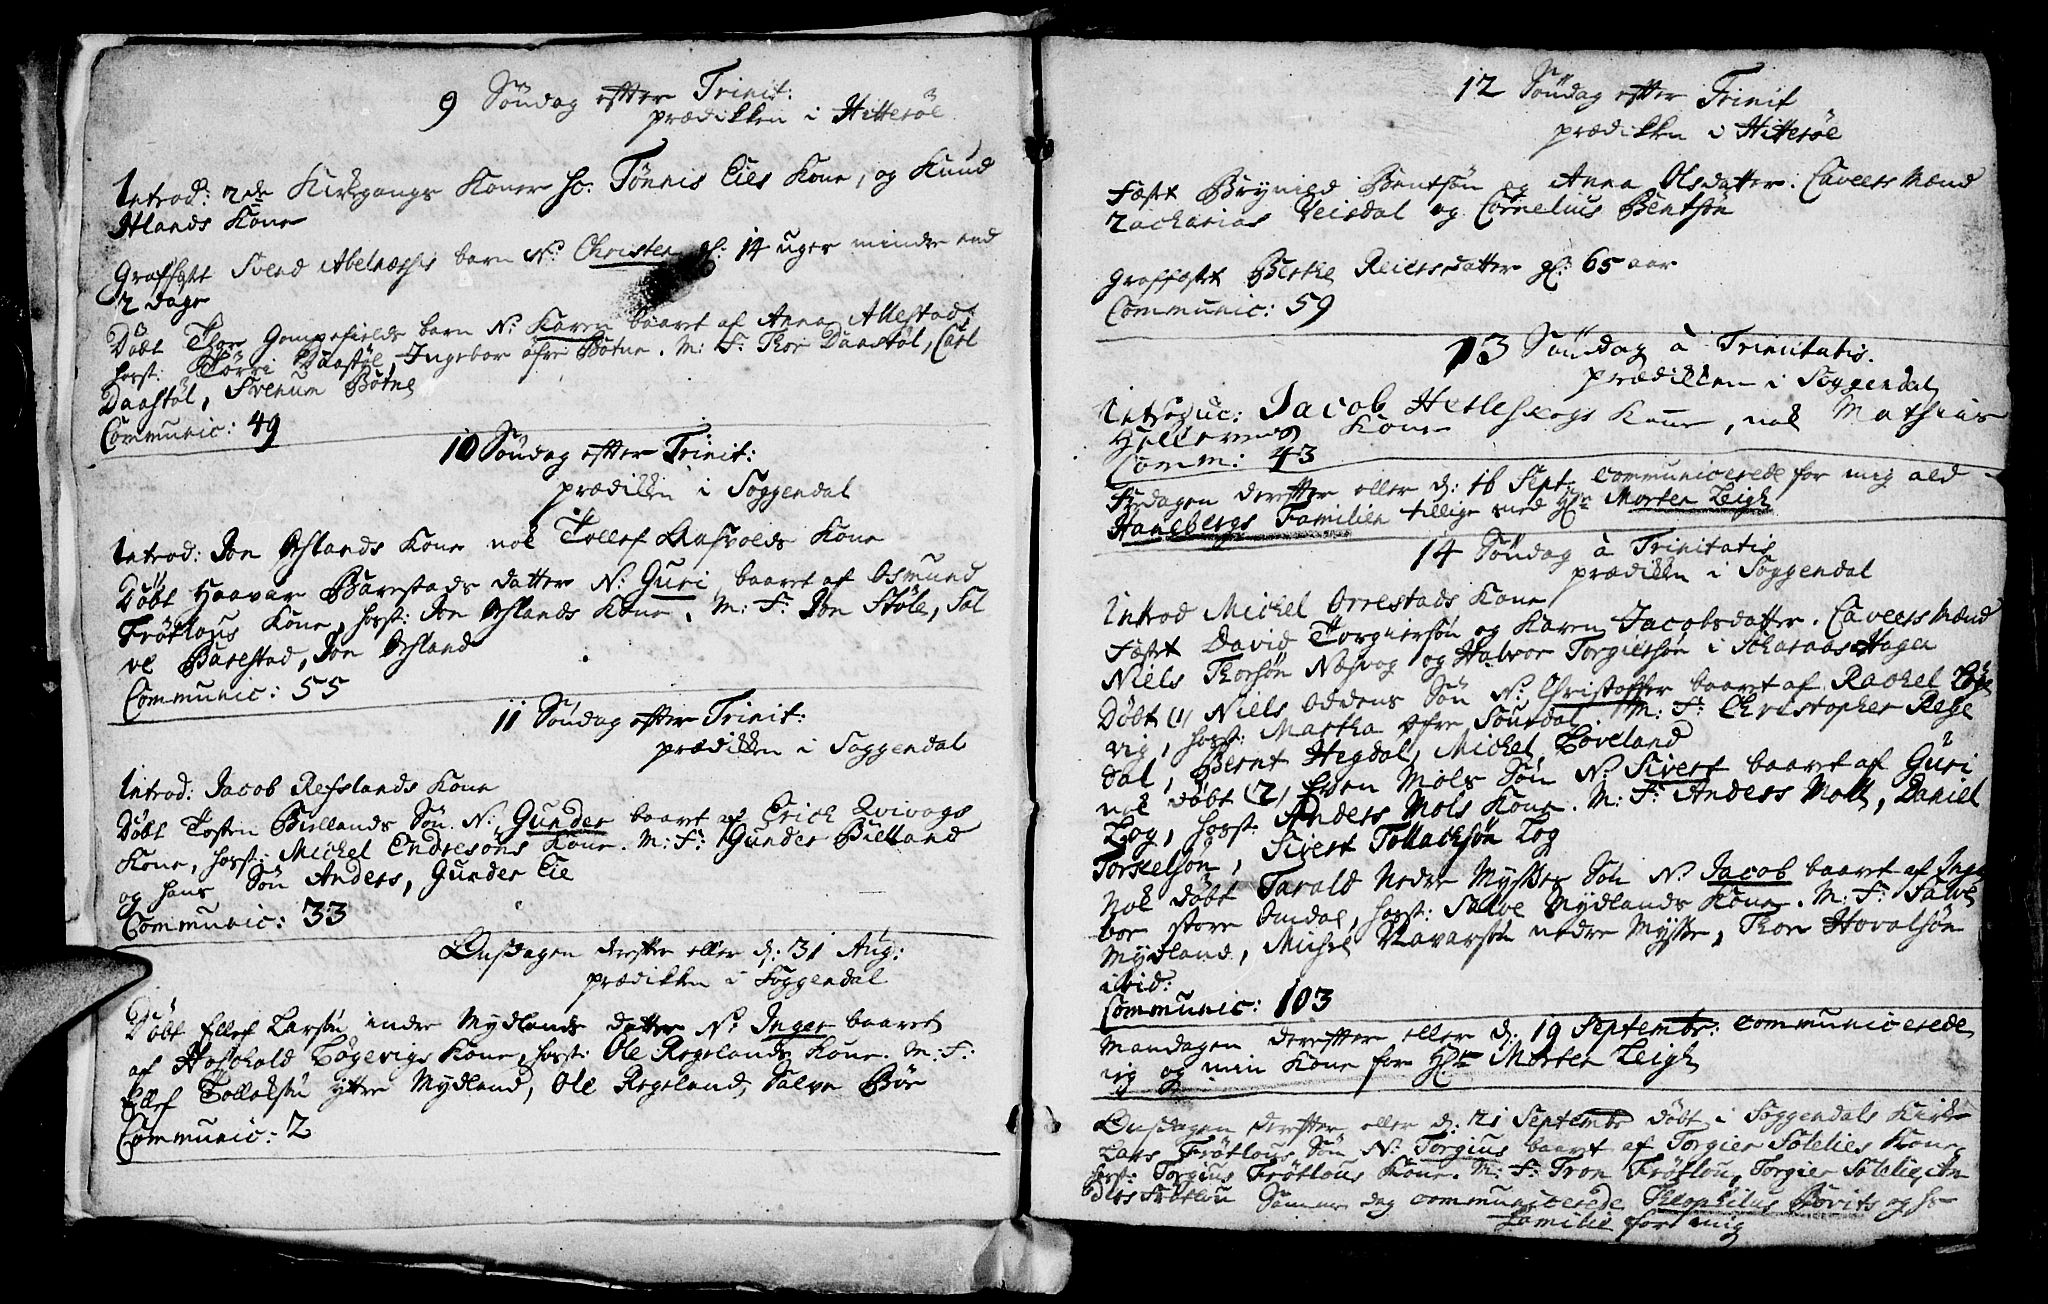 9 Söndag efter Trinit:
prædikken i Hitteröe
Introd: 2de Kirkgangs Koner sc. Tönnis Eies Kone, og Knud
Atlands Kone
Graffæst Svend Abelnæsis barn N: Christen gl: 14 uger mindre end
2 dage
Döbt Thore Gompefields barn N: Karen baaret af Anna Allestad,
horst: Törri Daastöl, Ingebor öfre Bötne. M: F: Thor Daastöl, Carl
Daastöl, Svenum Bötne
Communic: 49
10 Söndag efter Trinit:
prædikken i Soggendal
Introd: Jon Aslands Kone nok Tollef Kone
Döbt Haavar Barestads datter N: Guri baaret af Osmund
Frötlous Kone, horst: Jon Aslands Kone. M: F: Jon Stöle, Sal
ve Barestad, Jon Asland
Communic: 55
11 Söndag efter Trinit:
prædikken i Soggendal
Introd: Jacob Refslands Kone
Döbt Tosten Biellands Sön N: Gunder baaret af Erich Qvivogs
Kone, horst: Michel Endresöns Kone. M: F: Gunder Bielland
og hans Sön Anders, Gunder Eie
Communic: 33
Onsdagen derefter eller d: 31 Aug:
prædikken i Soggendal
Döbt Ellef Larsön indre Mydlands datter N: Inger baaret
af Lögevigs Kone, horst: Ole Regelands Kone. M: F:
Ellef Tollaksön ytre Mydland, Ole Regeland, Salve Böe
Communic: 2
12 Söndag efter Trinit
prædikken i Hitteröe
Fæst Brynild Bentsön og Anna Olsdatter. Caveers Mænd
Zacharias Veisdal og Cornelius Bentsön
Graffæst Berthe Reiersdatter gl: 65 aar
Communic: 59
13 Söndag à Trinitatis.
prædikken i Soggendal
Introduc: Jacob Hetleskogs Kone, nok Mathias
Helleren Kone
Comm: 43
Fredagen derefter eller d: 16 Sept. communicerede for mig
Haaebergs Familien tillige med Hr Morten Leigh
14 Söndag à Trinitatis
prædikken i Soggendal
Introd Michel Orrestads Kone
Fæst David Torgiersön og Karen Jacobsdatter. Caveers Mænd
Niels Thorsön Næsvog og Halvor Torgiersön i Hagen
Döbt (1) Niels Oddens Sön N: Christoffer baaret af Rachel Löge
vig, horst: Martha öfre Sourdal. M: F: Christopher Rege
dal, Bernt Hegdal, Michel Loveland
nok döbt (2) Even Mols Sön N: Sivert baaret af Guri
Log, horst: Anders Mols Kone. M: F: Anders Moll, Daniel
Torkelsön, Sivert Tollachsön Log
Nok döbt Tarald Nedre Mysse Sön N: Jacob baaret af Inge
bor store Omdal, horst: Salve Mydlands Kone. M: F: Salve
Mydland, Michel Havarsön nedre Mysse, Thor Hovalsön
ibid:
Communic: 103
Mandagen derefter eller d: 19 Septembr: communicerede
ieg og min Kone for Hr Morten Leigh
Onsdagen derefter eller d: 21 Septembr döbt i Soggendals Kirke
Lars Frötlous Sön N: Torgius baaret af Torgier Sötelies Kone,
horst: Torgius Frötlous Kone. M: F: Tron Frötlou, Torgier Sötelie, An
ders Frötlou Samme dag communicerede Theophilus Börits og hs
Familie for mig